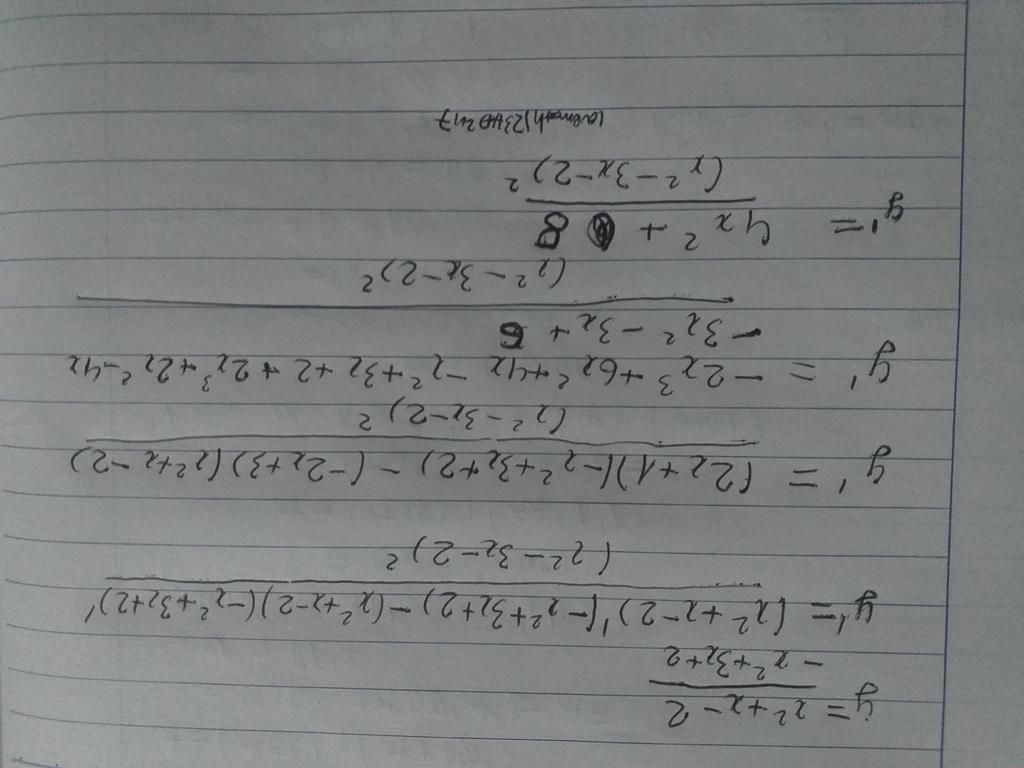 y = x²+x-2 / -x²+3x+2
y' = (x²+x-2)'(-x²+3x+2) - (x²+x-2)(-x²+3x+2)' / (x²-3x-2)²
y' = (2x+1)(-x²+3x+2) - (-2x+3)(x²+x-2) / (x²-3x-2)²
y' = -2x³+6x²+4x -x²+3x+2+2x³+2x²-4x
-3x²-3x+6 / (x²-3x-2)²
y' = 4x² + 8 / (x²-3x-2)²